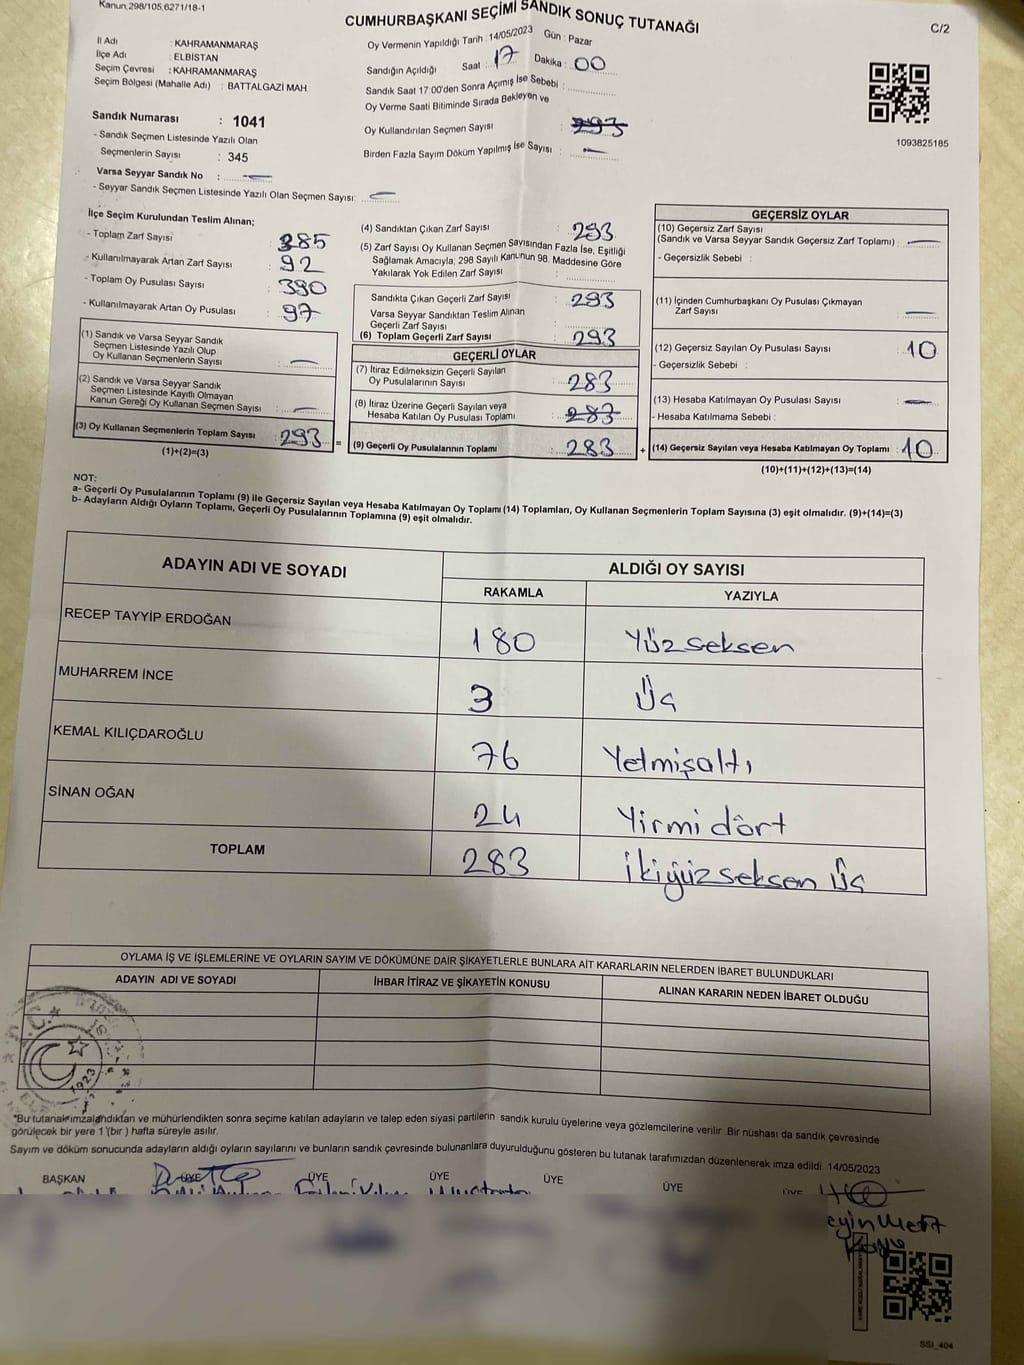 Kanun,298/105,6271/18-1
CUMHURBAŞKANI SEÇİMİ SANDIK SONUÇ TUTANAĞI
C/2
İl Adı : KAHRAMANMARAŞ
İlçe Adı : ELBİSTAN
Seçim Çevresi : KAHRAMANMARAŞ
Seçim Bölgesi (Mahalle Adı) : BATTALGAZİ MAH.
Oy Vermenin Yapıldığı Tarih : 14/05/2023 Gün : Pazar
Sandığın Açıldığı Saat : 17 Dakika : 00
Sandık Saat 17:00'den Sonra Açımış İse Sebebi :
Oy Verme Saati Bitiminde Sırada Bekleyen ve
Oy Kullandırılan Seçmen Sayısı : 293
Birden Fazla Sayım Döküm Yapılmış İse Sayısı : —
1093825185
Sandık Numarası : 1041
- Sandık Seçmen Listesinde Yazılı Olan
Seçmenlerin Sayısı : 345
Varsa Seyyar Sandık No : —
- Seyyar Sandık Seçmen Listesinde Yazılı Olan Seçmen Sayısı: —
İlçe Seçim Kurulundan Teslim Alınan;
- Toplam Zarf Sayısı : 385
- Kullanılmayarak Artan Zarf Sayısı : 92
- Toplam Oy Pusulası Sayısı : 390
- Kullanılmayarak Artan Oy Pusulası : 97
(1) Sandık ve Varsa Seyyar Sandık
Seçmen Listesinde Yazılı Olup
Oy Kullanan Seçmenlerin Sayısı : —
(2) Sandık ve Varsa Seyyar Sandık
Seçmen Listesinde Kayıtlı Olmayan
Kanun Gereği Oy Kullanan Seçmen Sayısı : —
(3) Oy Kullanan Seçmenlerin Toplam Sayısı : 293 =
(1)+(2)=(3)
(4) Sandıktan Çıkan Zarf Sayısı : 293
(5) Zarf Sayısı Oy Kullanan Seçmen Sayısından Fazla İse, Eşitliği
Sağlamak Amacıyla; 298 Sayılı Kanunun 98. Maddesine Göre
Yakılarak Yok Edilen Zarf Sayısı :
Sandıkta Çıkan Geçerli Zarf Sayısı : 293
Varsa Seyyar Sandıktan Teslim Alınan
Geçerli Zarf Sayısı :
(6) Toplam Geçerli Zarf Sayısı : 293
GEÇERLİ OYLAR
(7) İtiraz Edilmeksizin Geçerli Sayılan
Oy Pusulalarının Sayısı : 283
(8) İtiraz Üzerine Geçerli Sayılan veya
Hesaba Katılan Oy Pusulası Toplamı : 283
(9) Geçerli Oy Pusulalarının Toplamı : 283 +
GEÇERSİZ OYLAR
(10) Geçersiz Zarf Sayısı
(Sandık ve Varsa Seyyar Sandık Geçersiz Zarf Toplamı) : —
- Geçersizlik Sebebi :
(11) İçinden Cumhurbaşkanı Oy Pusulası Çıkmayan
Zarf Sayısı : —
(12) Geçersiz Sayılan Oy Pusulası Sayısı : 10
- Geçersizlik Sebebi :
(13) Hesaba Katılmayan Oy Pusulası Sayısı : —
- Hesaba Katılmama Sebebi :
(14) Geçersiz Sayılan veya Hesaba Katılmayan Oy Toplamı : 10
(10)+(11)+(12)+(13)=(14)
NOT:
a- Geçerli Oy Pusulalarının Toplamı (9) ile Geçersiz Sayılan veya Hesaba Katılmayan Oy Toplamı (14) Toplamları, Oy Kullanan Seçmenlerin Toplam Sayısına (3) eşit olmalıdır. (9)+(14)=(3)
b- Adayların Aldığı Oyların Toplamı, Geçerli Oy Pusulalarının Toplamına (9) eşit olmalıdır.
ADAYIN ADI VE SOYADI
ALDIĞI OY SAYISI
RAKAMLA YAZIYLA
RECEP TAYYİP ERDOĞAN 180 Yüz seksen
MUHARREM İNCE 3 Üç
KEMAL KILIÇDAROĞLU 76 Yetmişaltı
SİNAN OĞAN 24 Yirmi dört
TOPLAM 283 İkiyüz seksen Üç
OYLAMA İŞ VE İŞLEMLERİNE VE OYLARIN SAYIM VE DÖKÜMÜNE DAİR ŞİKAYETLERLE BUNLARA AİT KARARLARIN NELERDEN İBARET BULUNDUKLARI
ADAYIN ADI VE SOYADI İHBAR İTİRAZ VE ŞİKAYETİN KONUSU ALINAN KARARIN NEDEN İBARET OLDUĞU
T.C.
1923
*Bu tutanak imzalandıktan ve mühürlendikten sonra seçime katılan adayların ve talep eden siyasi partilerin sandık kurulu üyelerine veya gözlemcilerine verilir. Bir nüshası da sandık çevresinde
görülecek bir yere 1 (bir ) hafta süreyle asılır.
Sayım ve döküm sonucunda adayların aldığı oyların sayılarını ve bunların sandık çevresinde bulunanlara duyurulduğunu gösteren bu tutanak tarafımızdan düzenlenerek imza edildi. 14/05/2023
BAŞKAN ÜYE ÜYE ÜYE ÜYE ÜYE ÜYE
SSI_404